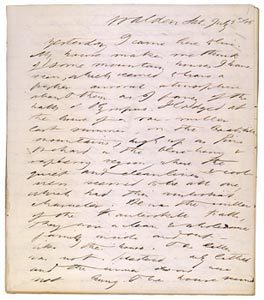 Walden Sat. July 5th 45
Yesterday I came here to live.
My house makes me think
of some mountain houses I have
seen, which seemed to have a
fresher auroral atmosphere
about them as I fancy of the
halls of Olympus. I lodged at
the house of a saw-miller
last summer, on the Caatskill
mountains, high up as Pine
orchard in the blue-berry &
raspberry region, where the
quiet and cleanliness & cool
ness seemed to be all one,
which had this ambrosial
character. He was the miller
of the Kaaterskill Falls,
They were a clean & wholesome
family inside and out
like their house. The latter
was not plastered only lathed
and the inner doors were
not hung. The house seemed